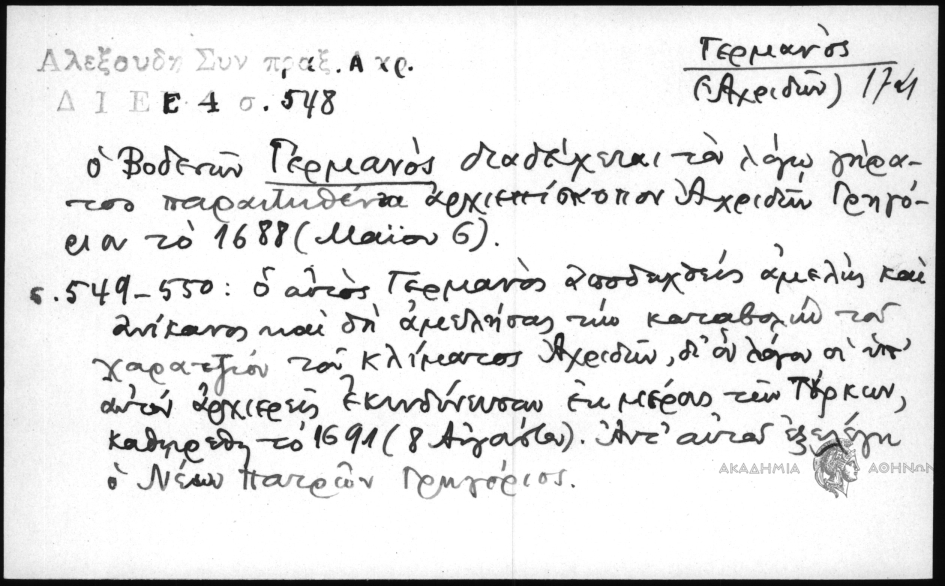 Αλεξουδη Συν πραξ. Α χρ.
Δ Ι Ε Ε 4 σ. 548
Γερμανὸς
(Ἀχριδῶν)
ὁ Βοδενῶν Γερμανὸς διαδέχεται τὸν λόγῳ γήρα-
τος παραιτηθέντα ἀρχιεπίσκοπον Ἀχριδῶν Γρηγό-
ριον τὸ 1688 (Μαϊου 6).
σ. 549-550: ὁ αὐτὸς Γερμανὸς ἀποδειχθεὶς ἀμελὴς καὶ
ἀνίκανος καὶ δὴ ἀμελήσας τὴν καταβολὴν τοῦ
χαρατζίου τοῦ κλίματος Ἀχριδῶν, δι' ὃν λόγον οἱ ὑπ'
αὐτὸν ἀρχιερεῖς ἐκινδύνευσαν ἐκ μέρους τῶν Τούρκων,
καθῃρέθη τὸ 1691 (8 Αὐγούστου). Ἀντ' αὐτοῦ ἐξελέγη
ὁ Νέων Πατρῶν Γρηγόριος.
ΑΚΑΔΗΜΙΑ ΑΘΗΝΩΝ